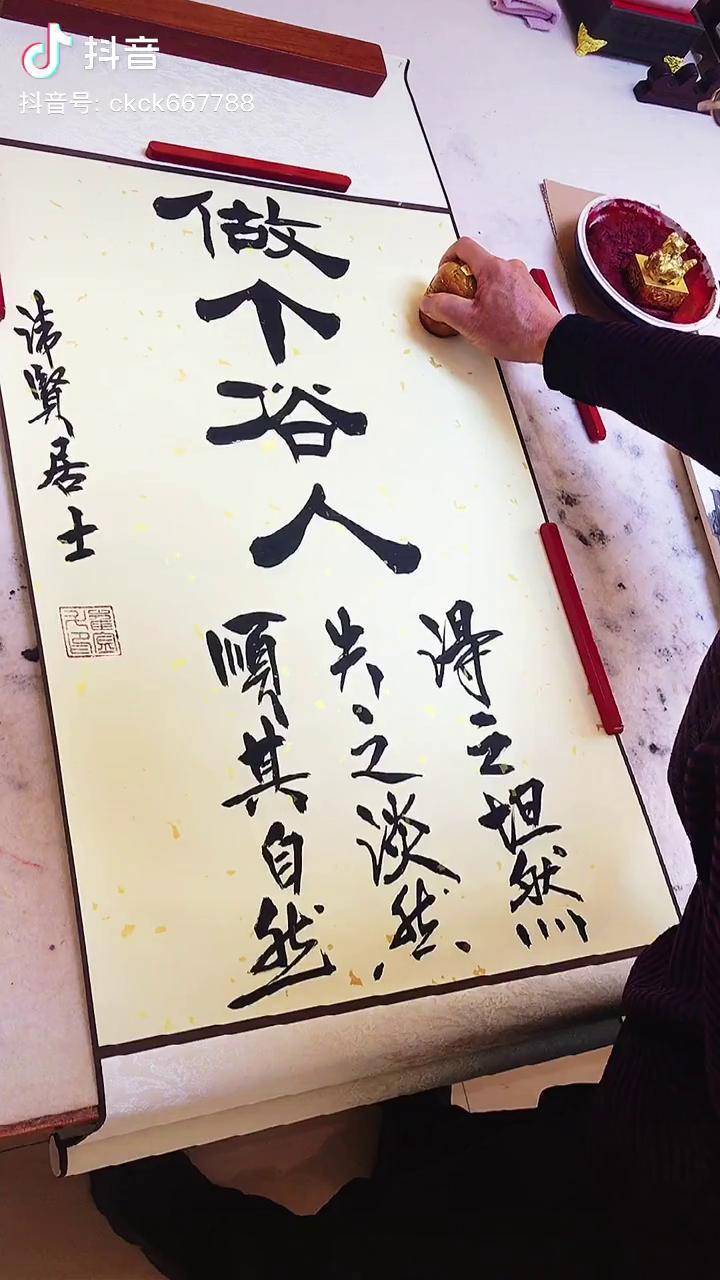 抖音
抖音号: ckck667788
做个俗人
得之坦然
失之淡然
順其自然
賢居士